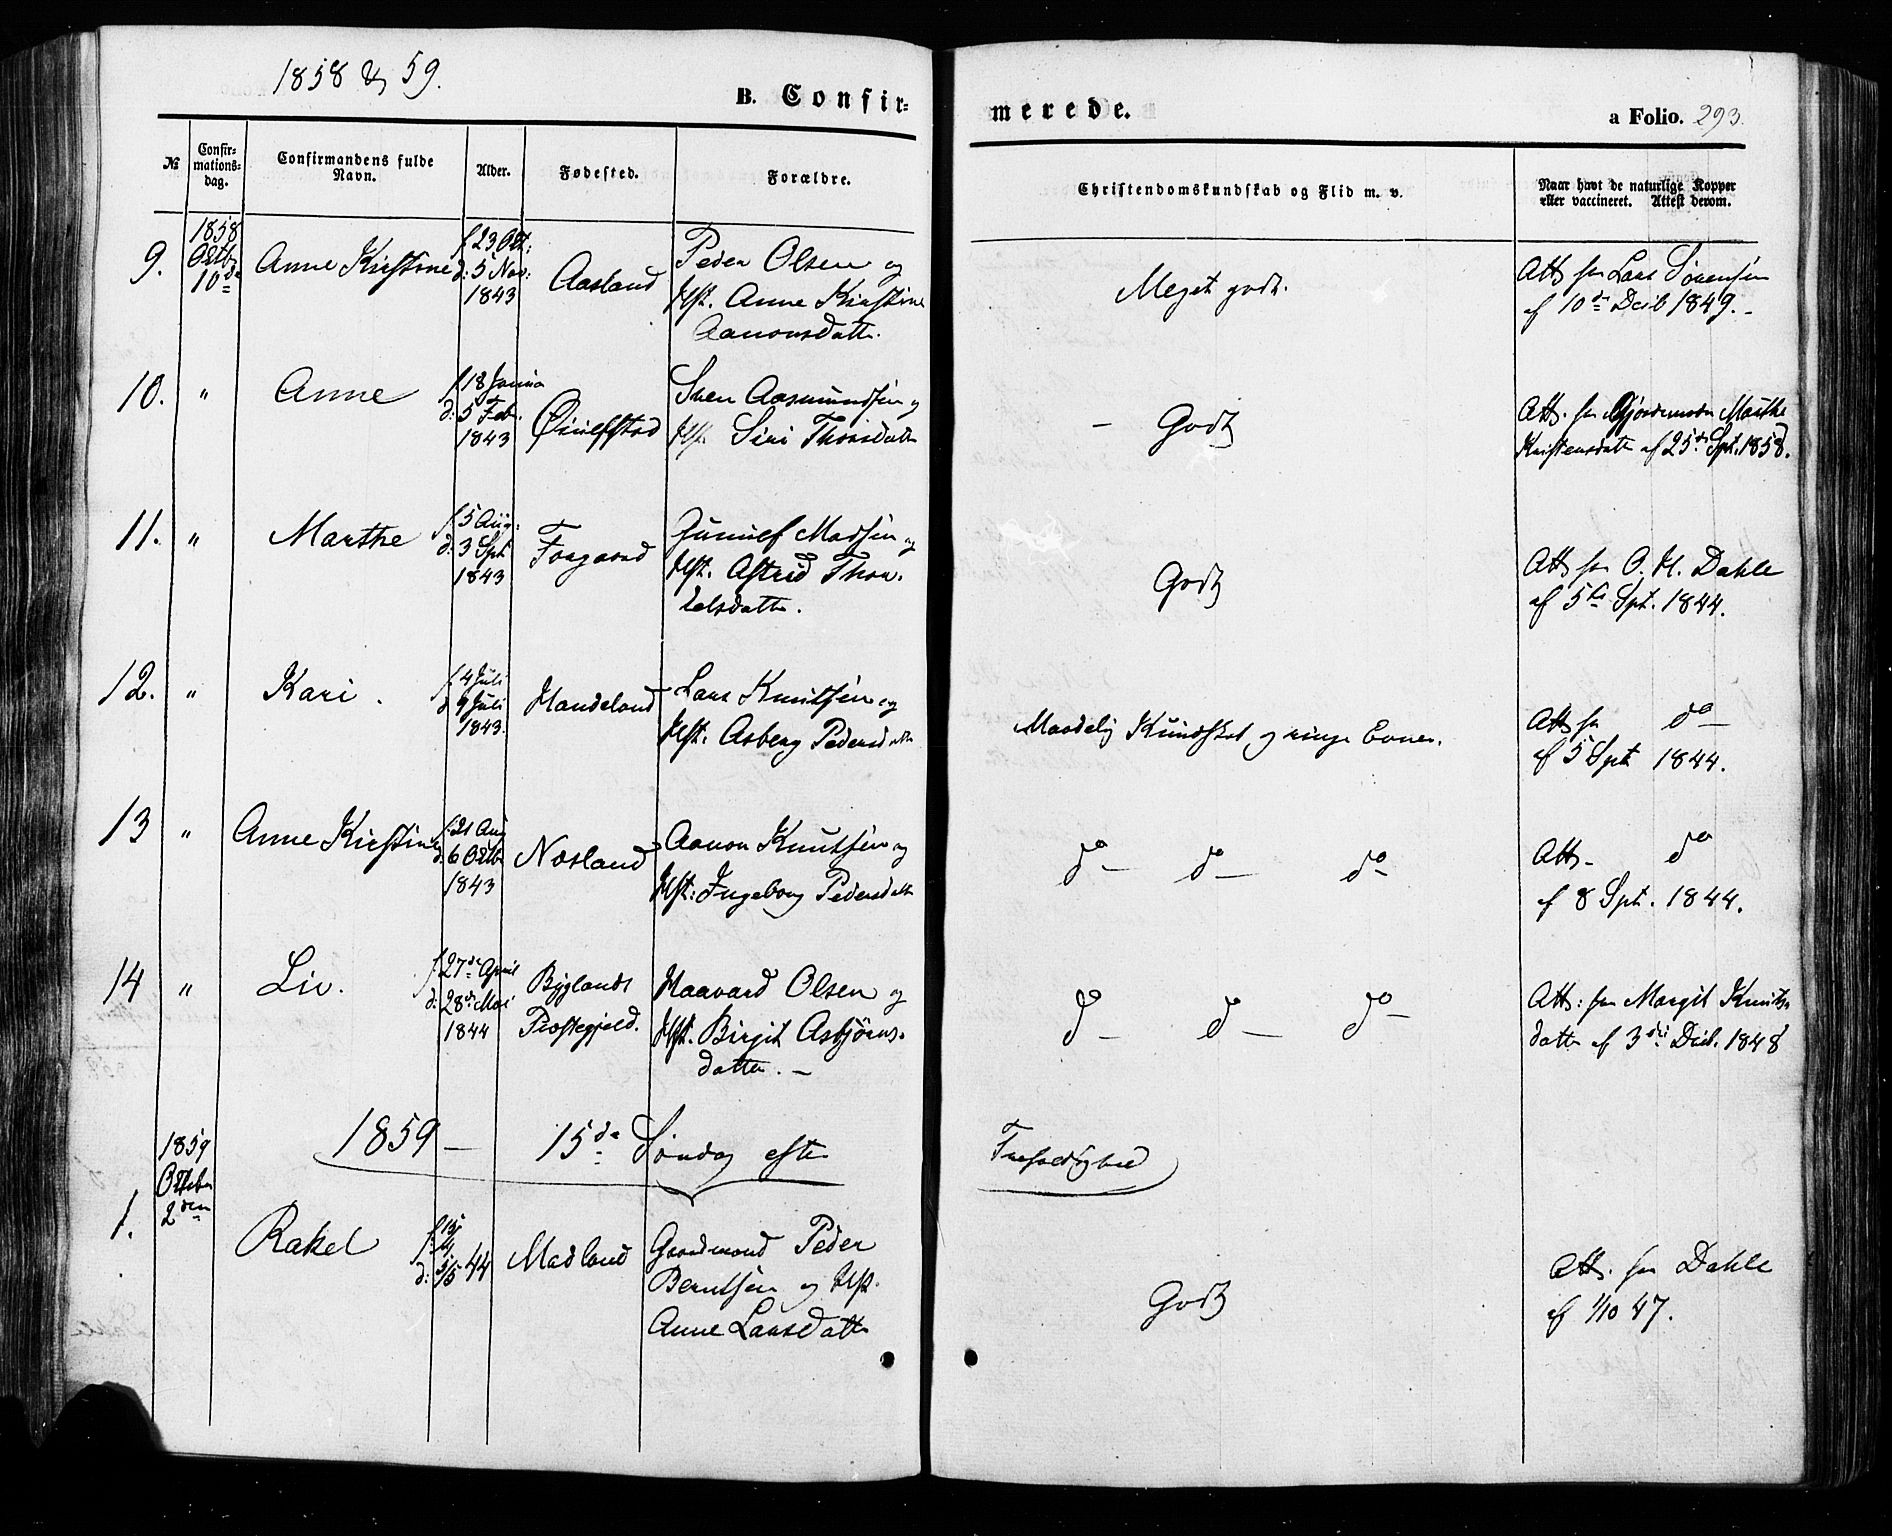 1858 & 59.
B. Confir=
merede.
a Folio. 293.
№
Confir=
mations=
dag.
Confirmandens fulde
Navn.
Alder.
Fødested.
Forældre.
Christendomskundskab og Flid m. v.
Naar havt de naturlige Kopper
eller vaccineret. Attest derom.
9.
1858
Octb.
10de
Anne Kirstine
f. 23 Okt:
d: 5 Nov:
1843
Aasland
Peder Olsen og
Hst. Anne Kirstine
Aanonsdatte.
Meget godt.
Att. fra Lars Sørensen
af 10de Decb 1849.-
10.
"
Anne
f. 18 Janua
d: 5 Feb.
1843
Øiulfstad
Sven Aasmundsen og
Hst. Siri Thorsdatte
- Godt
Att. fra Gjordemoder Marthe
Kristensdatte af 25de Spt. 1858.
11.
"
Marthe
f. 5 Aug:
d: 3 Spt
1843
Faagaard
Gunulf Madsen og
Hst. Astrid Thor=
kelsdatte.
Godt
Att. fra O. H. Dahle
af 5te Spt. 1844.
12.
"
Kari.
f. 4 Juli
d 9 Juli
1843.
Haudeland
Lars Knutsen og
Hst. Asberg Pedersdatte
Maadelig Kundskab og ringe Evner.
Att. fra do-
af 5 Spt 1844.
13
"
Anne Kirstine
f. 21 Aug
d: 6 Octb
1843
Næsland
Aanon Knutsen og
Hst: Ingeborg Pedersdatte
do- do- do-
Att- do
af 8 Spt. 1844.
14
"
Liv.
f. 27de April
d: 28de Mai
1844
Byglands
Præstegjeld.
Haavard Olsen og
Hst. Birgit Asbjørns=
datte. -
do- do- do-
Att: fra Margit Knuts=
datte af 3die Decb. 1848
1859 - 15de Søndag efter
Trefoldighed
1.
1859
Octobr
2den
Rakel
d: 5/5 44
Madland
Gaardmand Peder
Berntsen og Hst.
Anne Larsdatte
Godt
Att. fra Dahle
af 1/10 47.